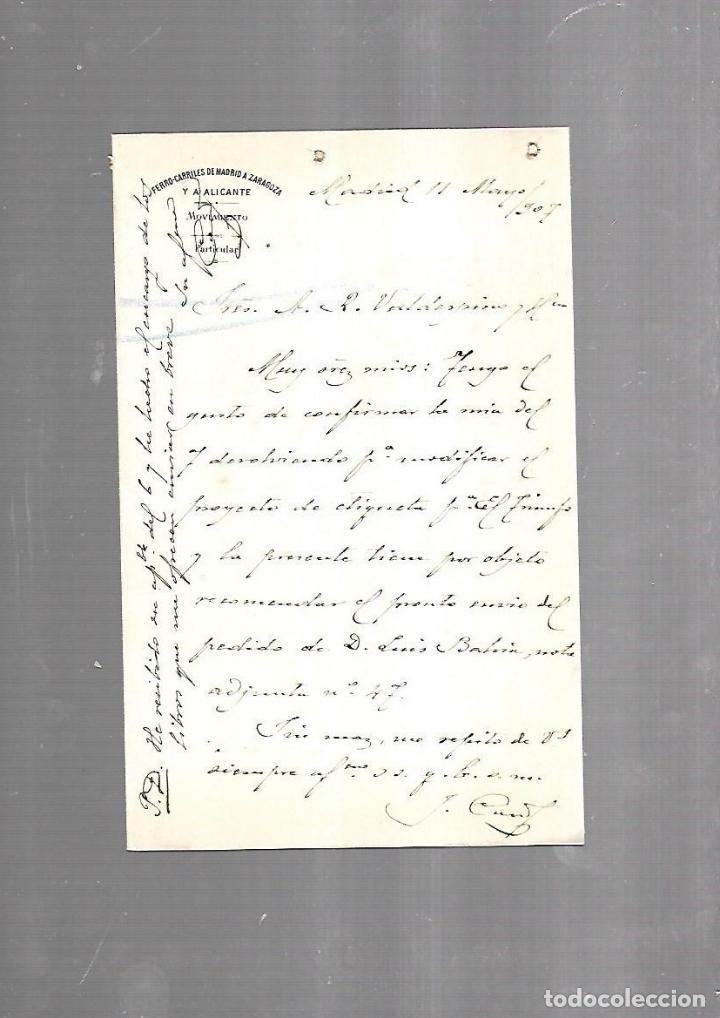 FERRO-CARRILES DE MADRID A ZARAGOZA
Y A ALICANTE
MOVIMIENTO
Particular
Madrid 11 Mayo/907
Sres. A. R. Valdespino y Hno
Muy Sres mios: Tengo el
gusto de confirmar la mia del
7 devolviendo pª modificar el
proyecto de etiqueta pª El Triunfo
y la presente tiene por objeto
recomendar el pronto envio del
pedido de D. Luis Bahia, nota
adjunta nº 47.
Sin mas, me repito de Vs
siempre afmo s.s. q. b. s. m.
J.
P.D. He recibido su apble del 6 y he hecho el encargo de los
libros que me ofrecen enviar en breve
todocoleccion
todocoleccion.net